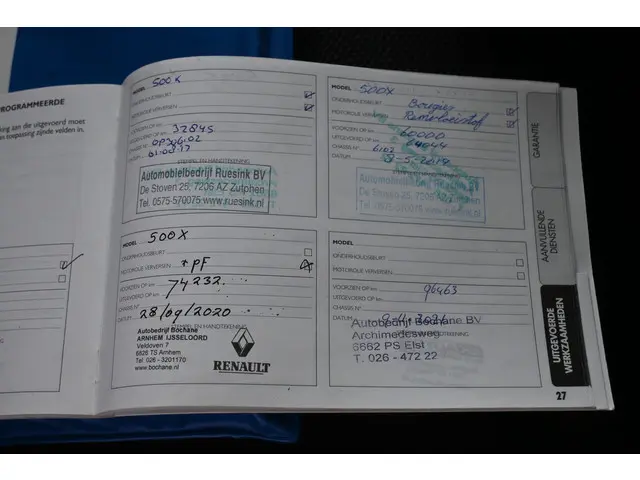 PROGRAMMEERDE
king aan die uitgevoerd moet
n toepassing zijnde velden in.
MODEL 500X
ONDERHOUDSBEURT
MOTOROLIE VERVERSEN
VOORZIEN OP km
UITGEVOERD OP km 32845
CHASSIS Nº OP306.02
DATUM 01-08-17
STEMPEL EN HANDTEKENING
Automobielbedrijf Ruesink BV
De Stoven 25, 7206 AZ Zutphen
Tel. 0575-570075 www.ruesink.nl
MODEL 500X
ONDERHOUDSBEURT Bougies
MOTOROLIE VERVERSEN Remvloeistof
VOORZIEN OP km 60000
UITGEVOERD OP km 64044
CHASSIS Nº 6102
DATUM 8-5-2019
Automobielbedrijf Ruesink BV
De Stoven 25, 7206 AZ Zutphen
Tel. 0575-570075 www.ruesink.nl
MODEL 500X
ONDERHOUDSBEURT
MOTOROLIE VERVERSEN + PF
VOORZIEN OP km
UITGEVOERD OP km 74232
CHASSIS Nº
DATUM 28/09/2020
STEMPEL EN HANDTEKENING
Autobedrijf Bochane
ARNHEM IJSSELOORD
Veldoven 7
6826 TS Arnhem
Tel. 026 - 3201170
www.bochane.nl
RENAULT
MODEL
ONDERHOUDSBEURT
MOTOROLIE VERVERSEN
VOORZIEN OP km
UITGEVOERD OP km 96463
CHASSIS Nº
DATUM
STEMPEL EN HANDTEKENING
Autobedrijf Bochane BV
Archimedesweg
6662 PS Elst
T. 026 - 472 22
GARANTIE
AANVULLENDE
DIENSTEN
UITGEVOERDE
WERKZAAMHEDEN
27